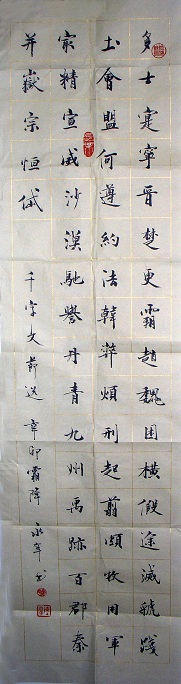 多士寔寧晉楚更霸趙魏困横假途滅虢踐
土會盟何遵約法韓弊煩刑起翦頗牧用軍
最精宣威沙漠馳譽丹青九州禹跡百郡秦
并嶽宗恒岱
千字文節选 辛卯霜降 永年书